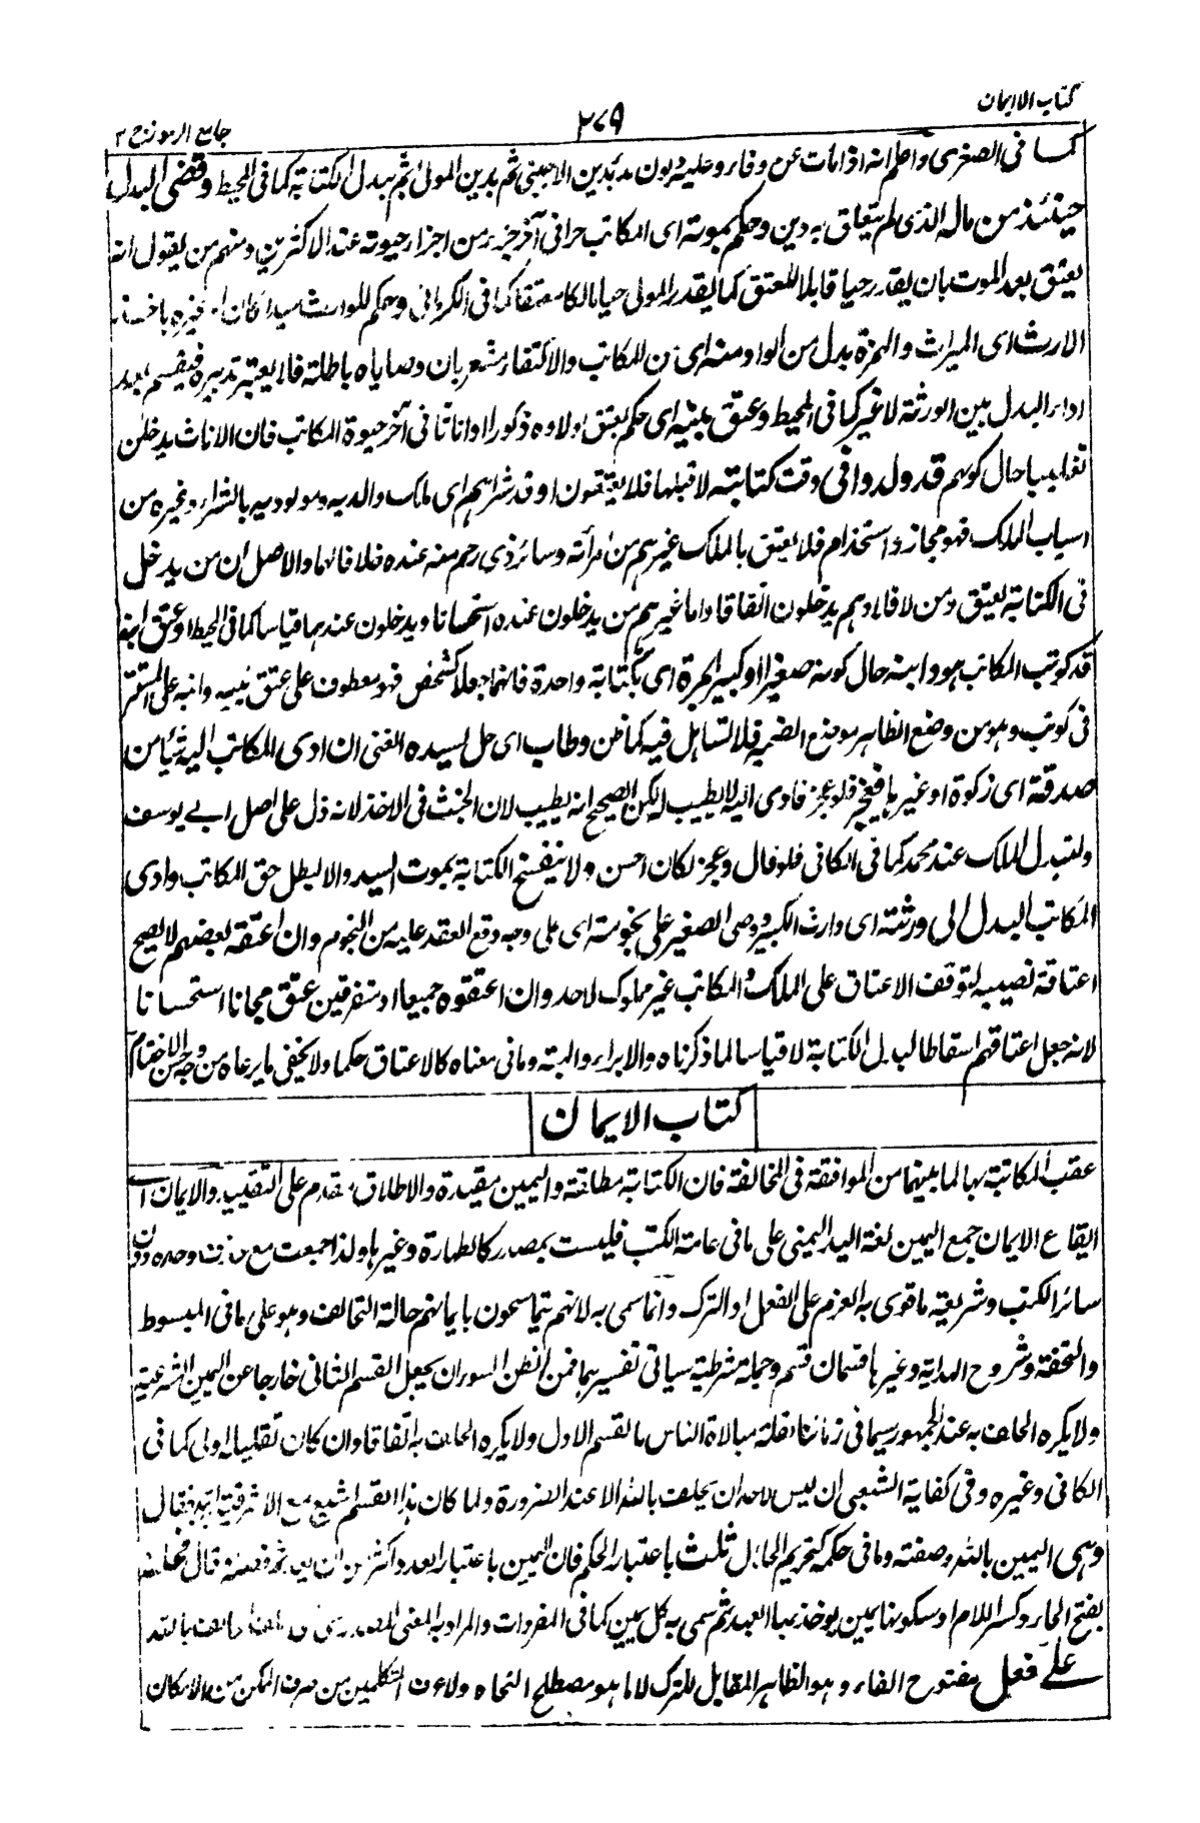 كتاب الايمان
٢٧٩
جامع الرموز ج ٢
كما فى الصغرى واعلم انه اذا مات عن وفاء وعليه ديون بدئ بدين الاجنبى ثم بدين المولى ثم ببدل الكتابة كما فى المحيط وقضى البدل
حينئذ من ماله الذى لم يتعلق به دين وحكم بموته اى المكاتب حرا فى آخر جزء من اجزاء حيوته عند الاكثرين ومنهم من يقول انه
يعتق بعد الموت بان يقدر حيا قابلا للعتق كما يقدر المولى حيا مالكا معتقا كما فى الكرمانى وحكم للوارث
الارث اى الميراث والهمزة بدل من الواو منه اى من المكاتب والاكتفاء مشعر بان وصاياه باطلة فلا يعتبر تدبيره فيقسم بعد
اداء البدل بين الورثة لا غير كما فى المحيط وعتق بنيه اى حكم بعتق اولاده ذكورا واناثا فى آخر حيوة المكاتب فان الاناث يدخلن
تغليبا حال كونهم قد ولدوا فى وقت كتابته لا قبلها فلا يعتقون او قد شراهم اى ملك والديه ومولوديه بالشراء وغيره من
اسباب الملك فهو مجاز واستخدام فلا يعتق بالملك غيرهم من امرأته وسائر ذى رحم منه عنده خلافا لهما والاصل ان من يدخل
فى الكتابة يعتق ومن لا فلا وهم يدخلون اتفاقا واما غيرهم من يدخلون عنده استحسانا ويدخلون عندهما قياسا كما فى المحيط او عتق ابنه
قد كوتب المكاتب هو وابنه حال كونه صغيرا او كبيرا بمرة اى بكتابة واحدة فانهما جعلا كشخص فهو معطوف على عتق بنيه وابنه على المستتر
فى كوتب وهو من وضع الظاهر موضع الضمير فلا تساهل فيه كما ظن وطاب اى حل لسيده الغنى ان ادى المكاتب اليه شيئا من
صدقة اى زكوة او غيرها فعجز فلو عجز فادى اليه لا يطيب لكن الصحيح انه يطيب لان الخبث فى الاخذ لانه ذل على اصل ابي يوسف
ولتبدل الملك عند محمد كما فى الكافى فلو قال وعجز لكان احسن ولا ينفسخ الكتابة بموت السيد والا لبطل حق المكاتب وادى
المكاتب البدل الى ورثته اى وارث الكبير ووصى الصغير على نجومه اى على وجه وقع العقد عليه من النجوم وان اعتقه بعضهم لا يصح
اعتاقه نصيبه لتوقف الاعتاق على الملك والمكاتب غير مملوك لاحد وان اعتقوه جميعا او متفرقين عتق مجانا استحسانا
لانه جعل اعتاقهم اسقاطا لبدل الكتابة لا قياسا لما ذكرناه والابراء والهبة وما فى معناه كالاعتاق حكما ولا يخفى ما يرعاه من وجه حسن الاختتام
كتاب الايمان
عقب المكاتبة بها لما بينهما من الموافقة فى المخالفة فان الكتابة مطلقة واليمين مقيدة والاطلاق مقدم على التقييد والايمان اى
ايقاع الايمان جمع اليمين لغة اليد اليمنى على ما فى عامة الكتب فليست بمصدر كالطهارة وغيرها ولذا جمعت مع وحده دون
سائر الكتب وشريعة ما قوى به العزم على الفعل او الترك وانما سمى به لانهم يتماسحون بايمانهم حالة التحالف وهو على ما فى المبسوط
والتحفة وشروح الهداية وغيرها قسمان قسم وجملة شرطية سياتى تفسيرهما فمن الظن السوء ان يجعل القسم الثانى خارجا عن اليمين الشرعية
ولا يكره الحلف به عند الجمهور سيما فى زماننا لقلة مبالاة الناس بالقسم الاول ولا يكره الحلف به اتفاقا وان كان تقليله اولى كما فى
الكافى وغيره وفى كفاية الشعبى ان ليس لاحد ان يحلف بالله الا عند الضرورة ولما كان هذا القسم اشيع مع الاشرفية ابتدء فقال
وهى اليمين بالله وصفته وما فى حكمه كتحريم الحلال ثلث باعتبار الحكم فان اليمين باعتبار العدد اكثر من ان يعد قال فحلفه
بفتح الحاء وكسر اللام او سكونها يمين يوخذ بها العهد ثم سمى به كل يمين كما فى المفردات والمراد به المعنى المصدرى بالله
على فعل مفتوح الفاء وهو الظاهر المقابل للترك لا ما هو مصطلح النحاة ولا عرف المتكلمين من صرف الممكن من الامكان